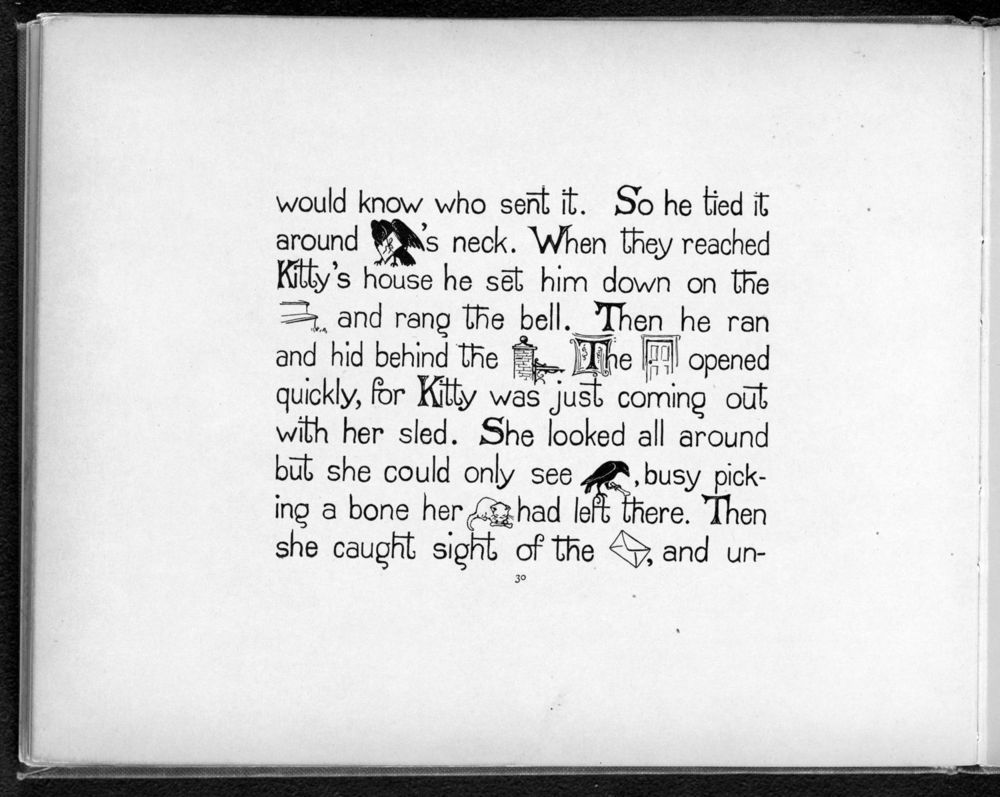 would know who sent it. So he tied it
around 's neck. When they reached
Kitty's house he set him down on the
and rang the bell. Then he ran
and hid behind the . The opened
quickly, for Kitty was just coming out
with her sled. She looked all around
but she could only see , busy pick-
ing a bone her had left there. Then
she caught sight of the , and un-
30